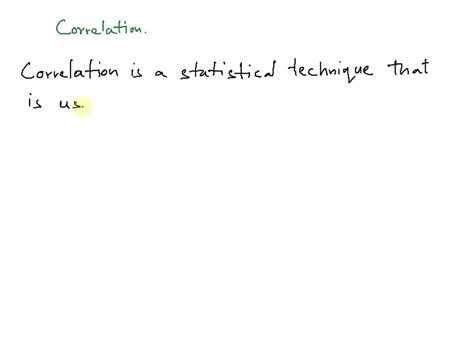 Correlation.
Correlation is a statistical technique that
is us.